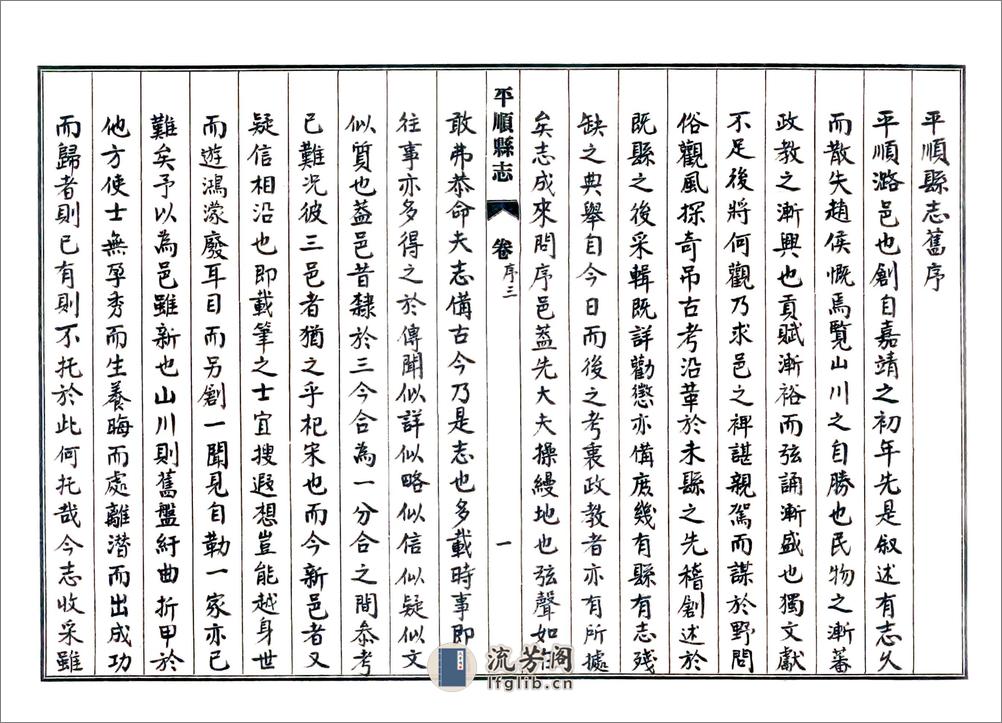 平順縣志舊序
平順潞邑也創自嘉靖之初年先是叙述有志久
而散失趙侯慨焉覽山川之自勝也民物之漸蕃
政教之漸興也貢賦漸裕而弦誦漸盛也獨文獻
不足後將何觀乃求邑之裨諶親駕而謀於野問
俗觀風探奇吊古考沿革於未縣之先稽創述於
既縣之後采輯既詳勸懲亦備庶幾有縣有志殘
缺之典舉自今日而後之考裏政教者亦有所據
矣志成來問序邑葢先大夫操縵地也弦聲如
平順縣志
卷
序三
一
敢弗恭命夫志備古今乃是志也多載時事即
往事亦多得之於傳聞似詳似略似信似疑似文
似質也葢邑昔隸於三今合為一分合之間叅考
已難況彼三邑者猶之乎杞宋也而今新邑者又
疑信相沿也即載筆之士宜搜遐想豈能越身世
而遊鴻濛廢耳目而另創一聞見自勒一家亦已
難矣予以為邑雖新也山川則舊盤紆曲折甲於
他方使士無孕秀而生養晦而處離潛而出成功
而歸者則已有則不托於此何托哉今志收采雖
流芳阁
lfglib.cn